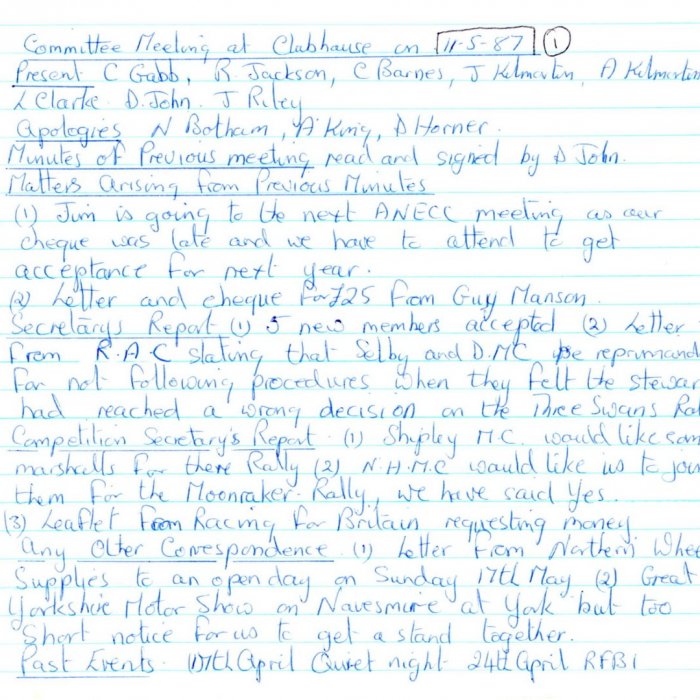 Committee Meeting at Clubhouse on 11-5-87 1
Present C Gabb, R. Jackson, C Barnes, J Kilmartin, A Kilmartin
L Clarke. D. John. J Riley
Apologies N Botham, A King, D Horner.
Minutes of Previous meeting read and signed by D John.
Matters Arising from Previous Minutes
(1) Jim is going to the next ANECC meeting as our
cheque was late and we have to attend to get
acceptance for next year.
(2) Letter and cheque for £25 from Guy Manson.
Secretarys Report (1) 5 new members accepted (2) Letter
from R.A.C stating that Selby and D.M.C be reprimand
for not following procedures when they felt the stewar
had reached a wrong decision on the Three Swans Ral
Competition Secretary's Report. (1) Shipley M.C. would like som
marshalls for there Rally (2) N.H.M.C would like us to join
them for the Moonraker. Rally, we have said Yes.
(3) Leaflet from Racing for Britain requesting money
Any Other Correspondence. (1) Letter from Northern Whee
Supplies to an open day on Sunday 17th May. (2) Great
Yorkshire Motor Show on Navesmire at York but too
short notice for us to get a stand together.
Past Events. (1) 17th April Quiet night 24th April RFBI